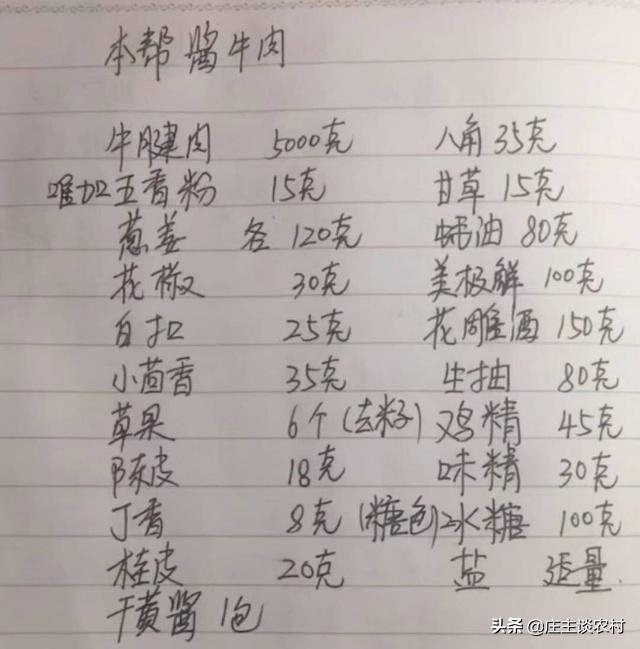 本帮酱牛肉
牛腱肉 5000克 八角 35克
唯加五香粉 15克 甘草 15克
葱姜 各 120克 蚝油 80克
花椒 30克 美极鲜 100克
白扣 25克 花雕酒 150克
小茴香 35克 生抽 80克
草果 6个(去籽) 鸡精 45克
陈皮 18克 味精 30克
丁香 8克 (糖色)冰糖 100克
桂皮 20克 盐 适量.
干黄酱 1包
头条 @庄主谈农村